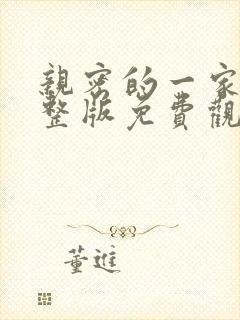 親密的一家
整版免費觀
董進